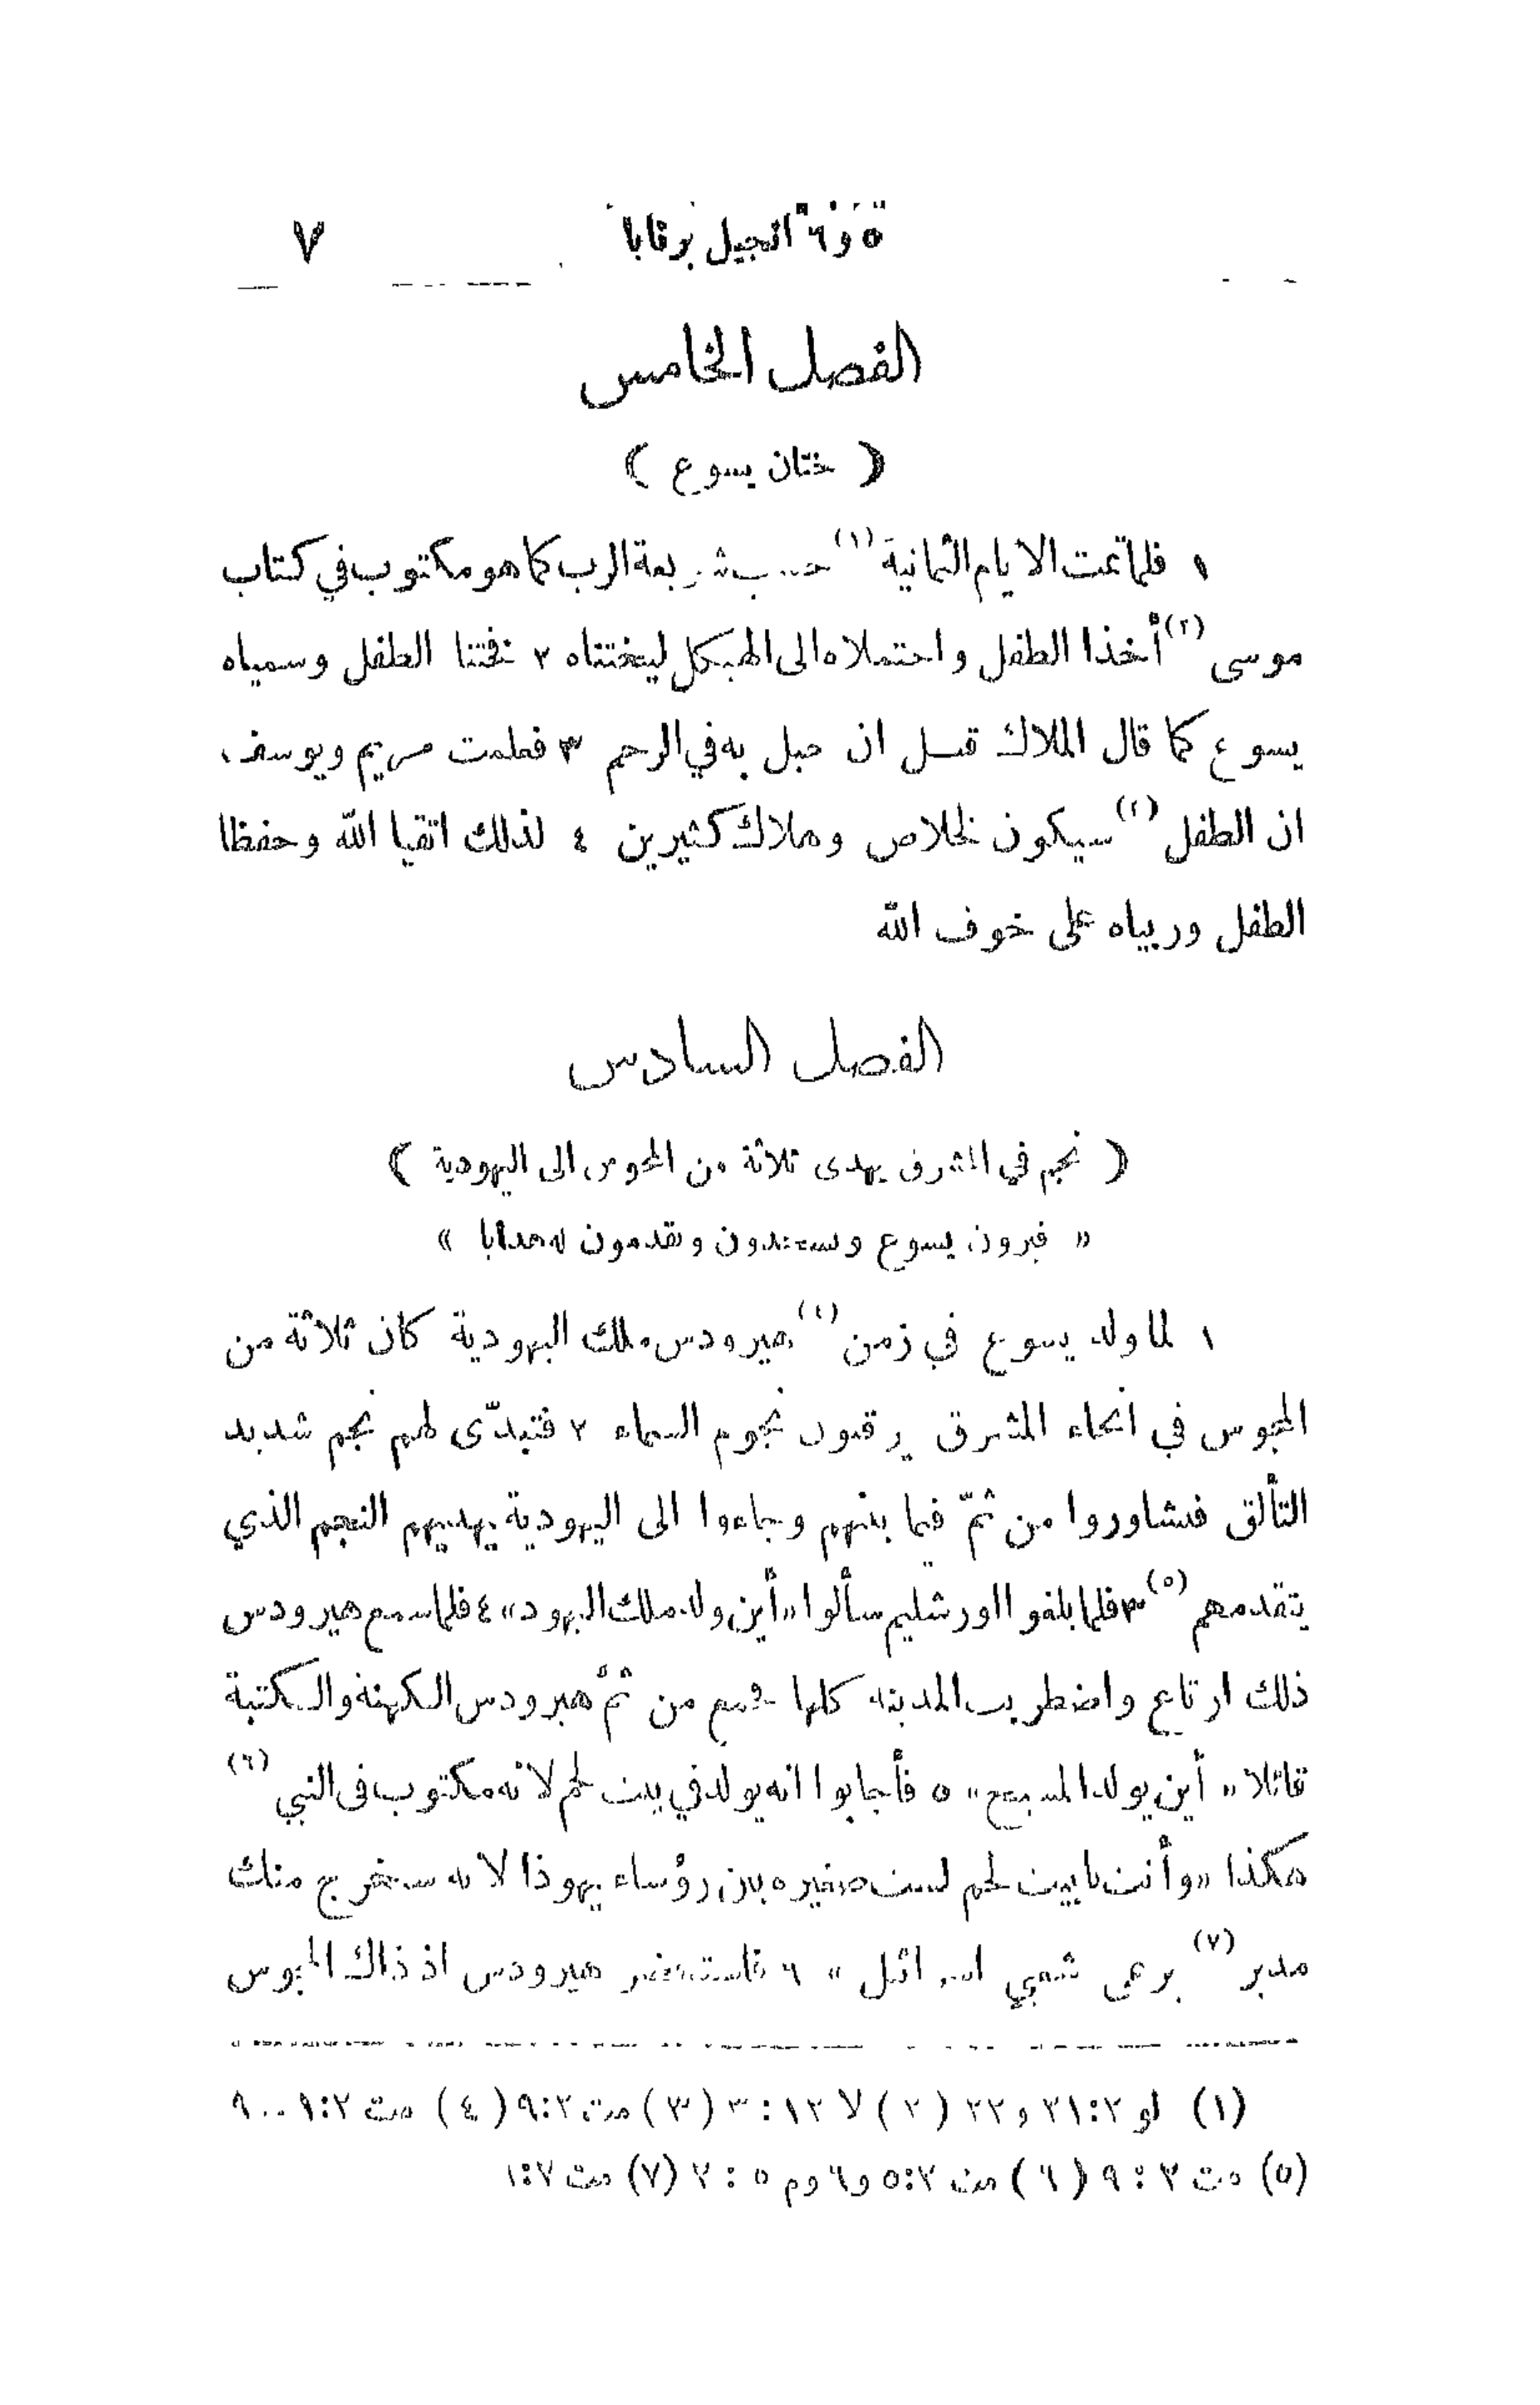 ٥ و٦ انجيل برنابا ٧
الفصل الخامس
( ختان يسوع )
١ فلما تمت الايام الثمانية (١) حسب شريعة الرب كما هو مكتوب في كتاب
موسى (٢) أخذا الطفل واحتملاه الى الهيكل ليختناه ٢ فختنا الطفل وسمياه
يسوع كما قال الملاك قبل ان حبل به في الرحم ٣ فعلمت مريم ويوسف
ان الطفل (٣) سيكون لخلاص وهلاك كثيرين ٤ لذلك اتقيا الله وحفظا
الطفل وربياه على خوف الله
الفصل السادس
( نجم في المشرق يهدى ثلاثة من المجوس الى اليهودية )
« فيرون يسوع ويسجدون ويقدمون له هدايا »
١ لما ولد يسوع في زمن (٤) هيرودس ملك اليهودية كان ثلاثة من
المجوس في انحاء المشرق يرقبون نجوم السماء ٢ فتبدّى لهم نجم شديد
التألق فتشاوروا من ثمّ فيما بينهم وجاءوا الى اليهودية يهديهم النجم الذي
يتقدمهم (٥) ٣ فلما بلغوا اورشليم سألوا «أين ولد ملك اليهود» ٤ فلما سمع هيرودس
ذلك ارتاع واضطربت المدينة كلها فجمع من ثمّ هيرودس الكهنة والكتبة
قائلا « أين يولد المسيح» ٥ فأجابوا انه يولد في بيت لحم لانه مكتوب فى النبي (٦)
هكذا «وأنت يا بيت لحم لست صغيرة بين رؤساء يهوذا لانه سيخرج منك
مدبر (٧) يرعى شعبي اسرائيل » ٦ فاستحضر هيرودس اذ ذاك المجوس
(١) لو ٢١:٢ و ٢٢ (٢) لا ١٢ : ٣ (٣) مت ٩:٢ (٤) مت ١:٢..٩
(٥) مت ٢ : ٩ (٦) مت ٥:٢ و٦ وم ٥ : ٢ (٧) مت ١:٧